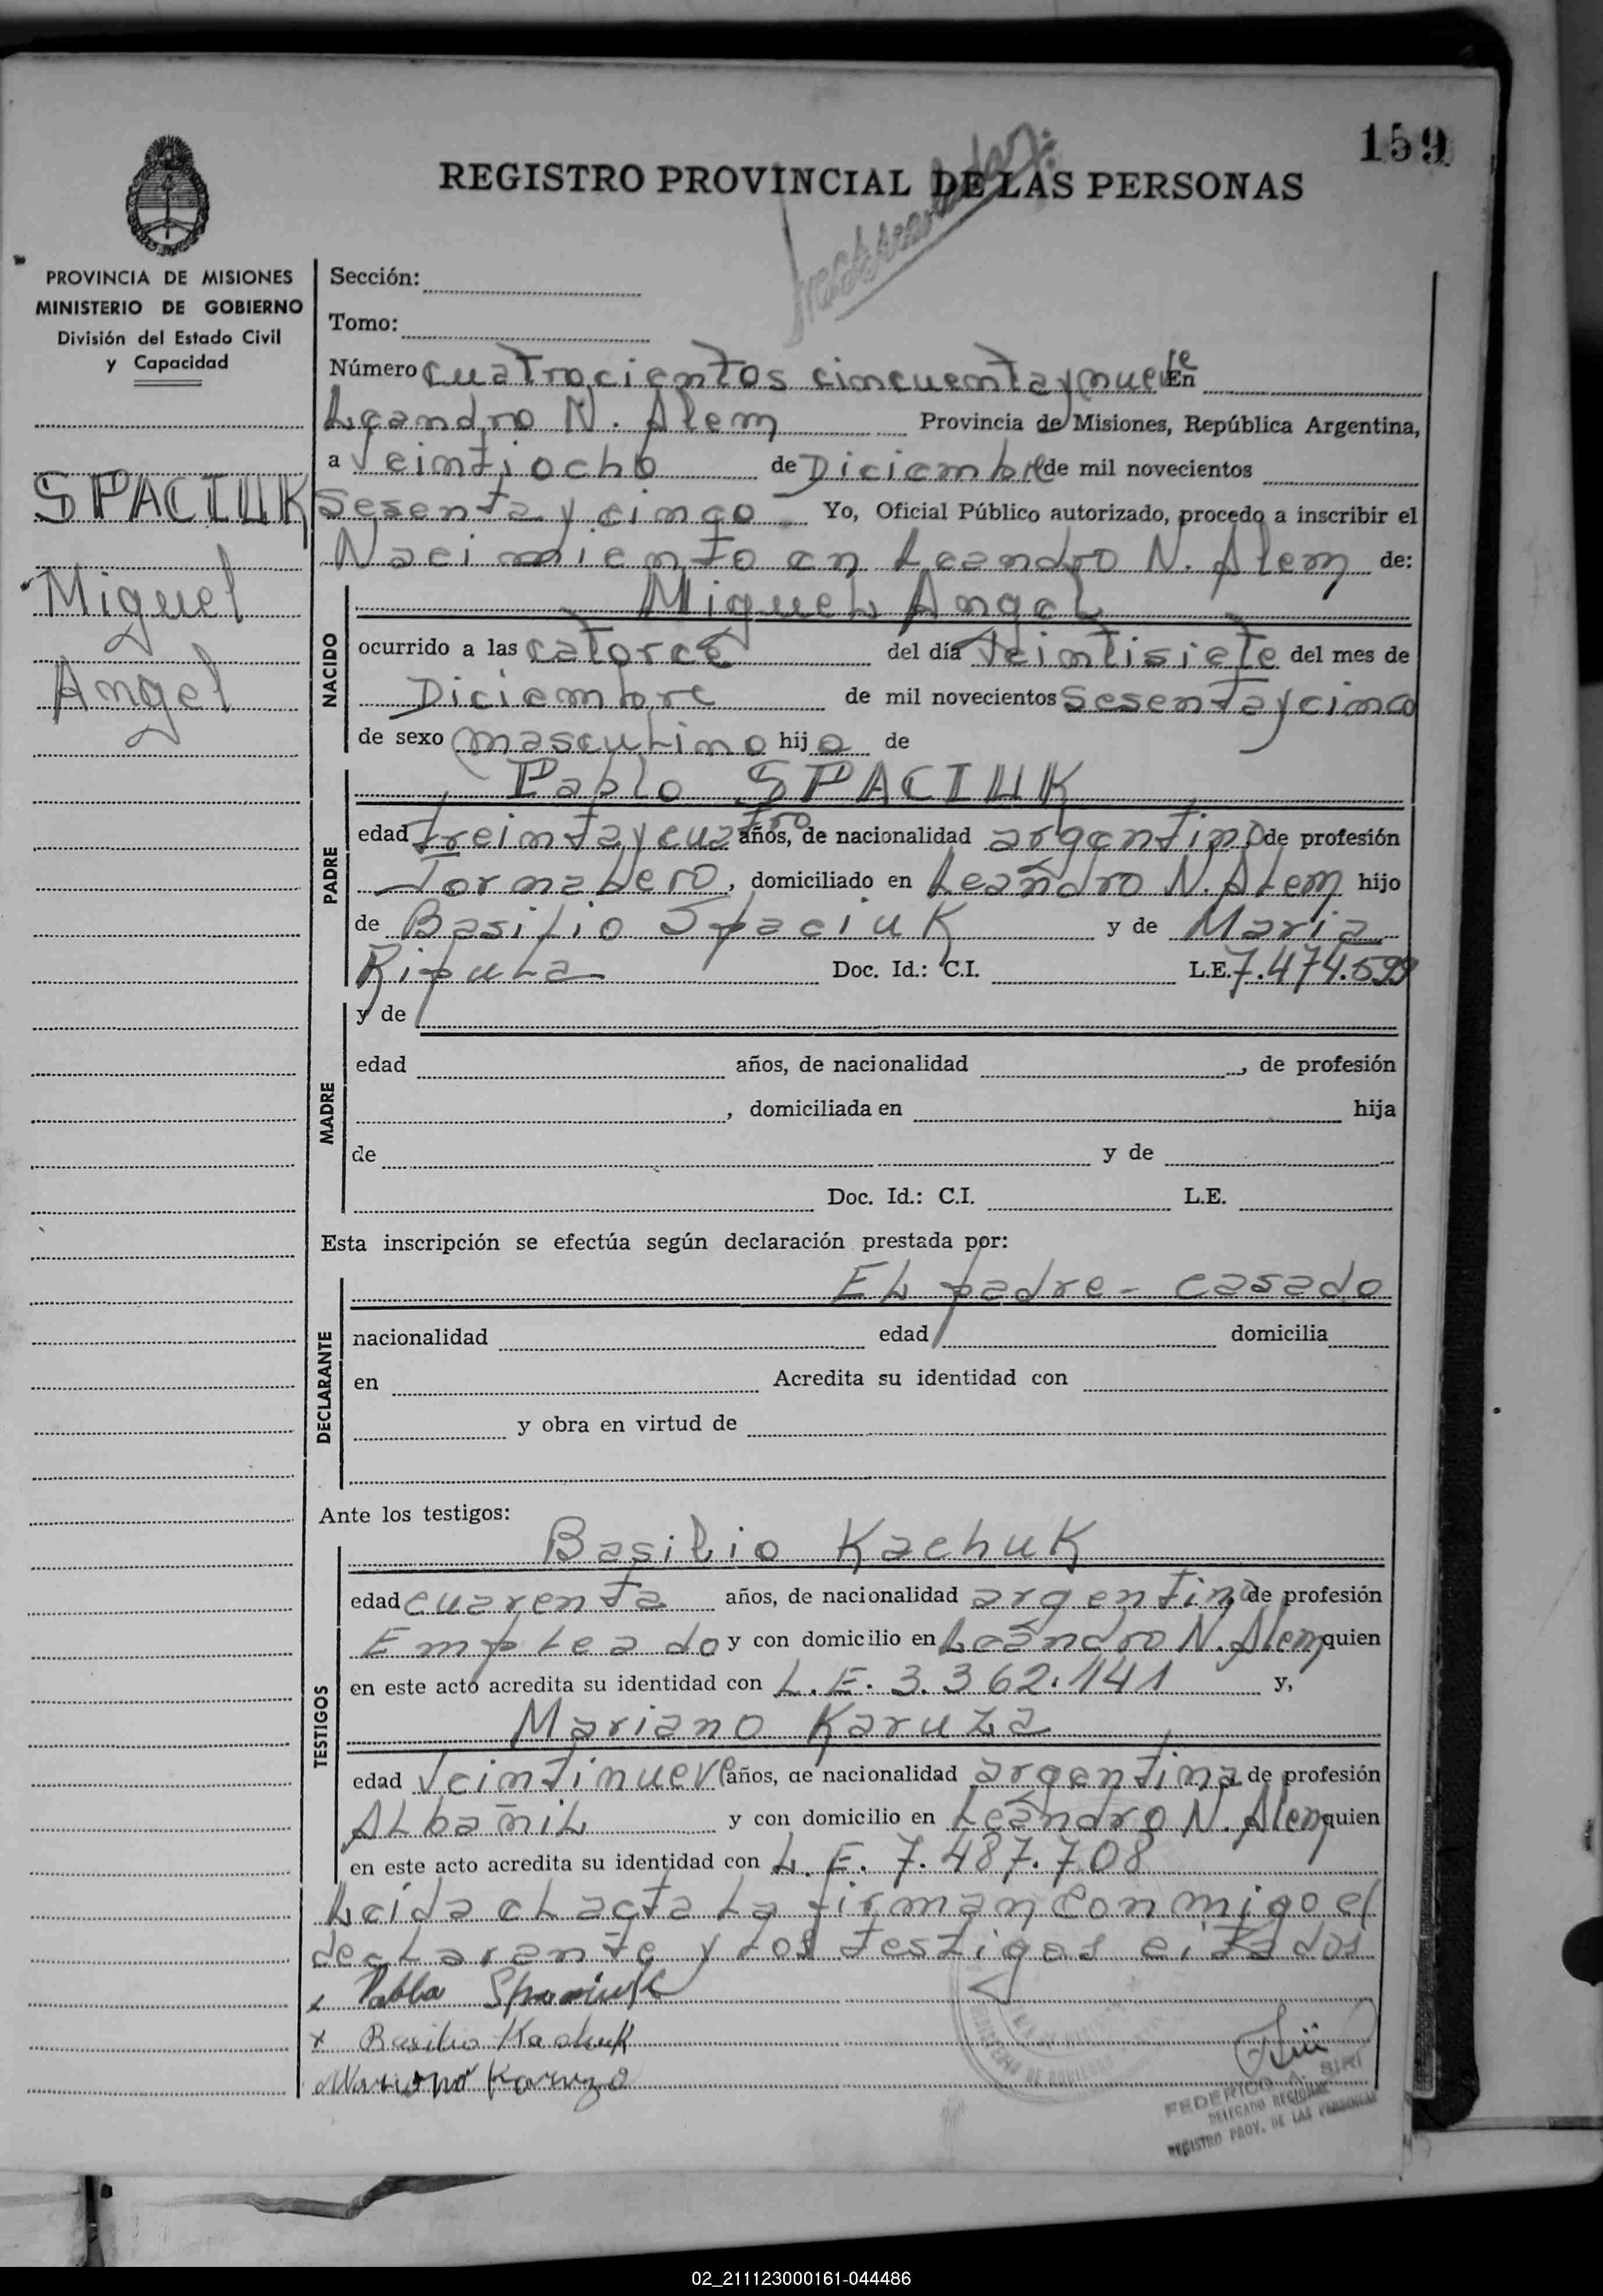 159
REGISTRO PROVINCIAL DE LAS PERSONAS
PROVINCIA DE MISIONES
MINISTERIO DE GOBIERNO
División del Estado Civil
y Capacidad
SPACIUK
Miguel
Angel
Sección:
Tomo:
Número cuatrocientos cincuenta y nueve En
Leandro N. Alem Provincia de Misiones, República Argentina,
a Veintiocho de Diciembre de mil novecientos
Sesenta y cinco Yo, Oficial Público autorizado, procedo a inscribir el
Nacimiento en Leandro N. Alem de:
NACIDO
Miguel Angel
ocurrido a las catorce del día Veintisiete del mes de
Diciembre de mil novecientos Sesenta y cinco
de sexo masculino hijo de
PADRE
Pablo SPACIUK
edad treinta y cuatro años, de nacionalidad argentino de profesión
Jornalero, domiciliado en Leandro N. Alem hijo
de Basilio Spaciuk y de Maria
Ripula Doc. Id.: C.I. L.E. 7.474.599
MADRE
y de
edad años, de nacionalidad , de profesión
, domiciliada en hija
de y de
Doc. Id.: C.I. L.E.
Esta inscripción se efectúa según declaración prestada por:
DECLARANTE
El padre - casado
nacionalidad edad domicilia
en Acredita su identidad con
y obra en virtud de
Ante los testigos:
TESTIGOS
Basilio Kachuk
edad cuarenta años, de nacionalidad argentina de profesión
Empleado y con domicilio en Leandro N. Alem quien
en este acto acredita su identidad con L.E. 3.362.141 y,
Mariano Karuza
edad Veintinueve años, de nacionalidad argentina de profesión
Albañil y con domicilio en Leandro N. Alem quien
en este acto acredita su identidad con L.E. 7.487.708
Leida el acta la firman conmigo el
declarante y los testigos citados
x Pablo Spaciuk
x Basilio Kachuk
Mariano Karuza
FEDERICO A.
DELEGADO REGIONAL
REGISTRO PROV. DE LAS PERSONAS
02_211123000161-044486